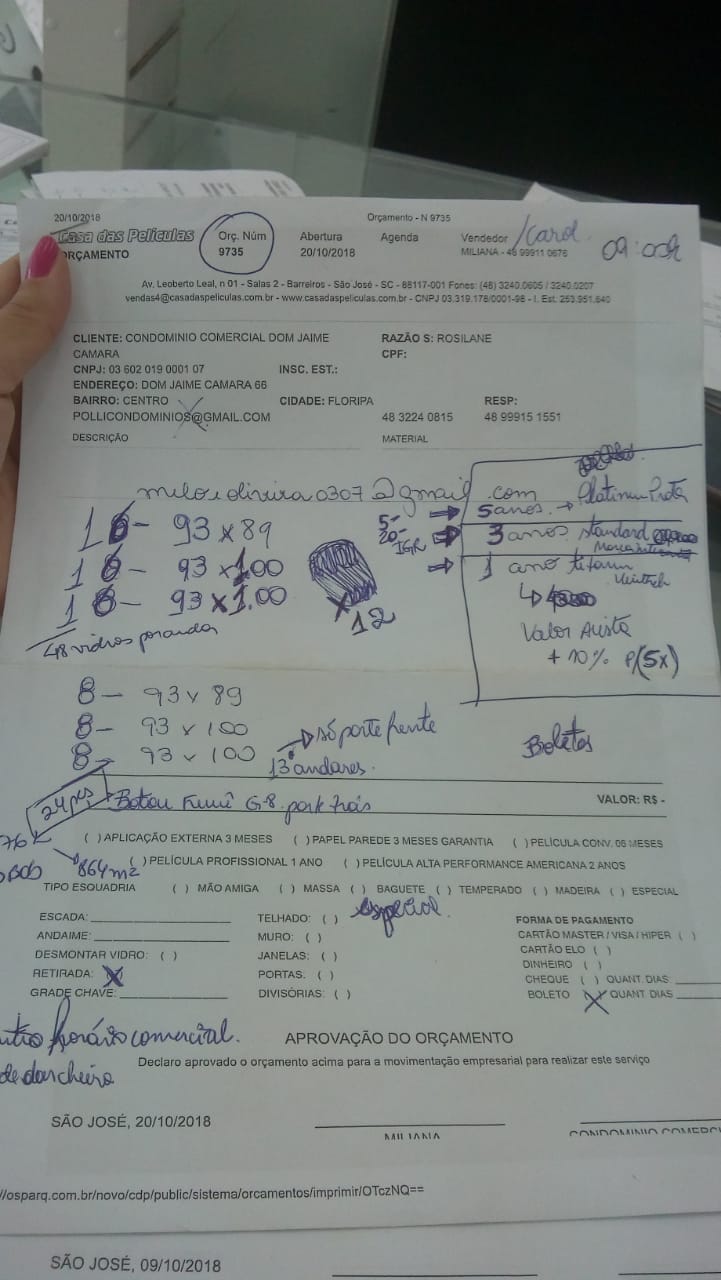 20/10/2018 Orçamento - N 9735
Casa das Películas Orç. Núm Abertura Agenda Vendedor /Carol 09:00h
ORÇAMENTO 9735 20/10/2018 MILIANA - 48 99911 0676
Av. Leoberto Leal, n 01 - Salas 2 - Barreiros - São José - SC - 88117-001 Fones: (48) 3240.0605 / 3240.0207
vendas4@casadaspeliculas.com.br - www.casadaspeliculas.com.br - CNPJ 03.319.178/0001-98 - I. Est. 253.951.640
CLIENTE: CONDOMINIO COMERCIAL DOM JAIME RAZÃO S: ROSILANE
CAMARA CPF:
CNPJ: 03 602 019 0001 07 INSC. EST.:
ENDEREÇO: DOM JAIME CAMARA 66
BAIRRO: CENTRO CIDADE: FLORIPA RESP:
POLLICONDOMINIOS@GMAIL.COM 48 3224 0815 48 99915 1551
DESCRIÇÃO MATERIAL
@gmail.com Platinum Prata
5- 5 anos
16 - 93 x 89 20- 3 anos standard
IGR
16 - 93 x 1.00 1 ano
16 - 93 x 1.00
x 12 Valor Avista
48 vidros por andar + 10% p/(5x)
8 - 93 x 89
8 - 93 x 100 só parte frente
8 - 93 x 100 13 andares. Boletos
24 pçs G-8 VALOR: R$ -
( ) APLICAÇÃO EXTERNA 3 MESES ( ) PAPEL PAREDE 3 MESES GARANTIA ( ) PELÍCULA CONV. 06 MESES
864 m2 ( ) PELÍCULA PROFISSIONAL 1 ANO ( ) PELÍCULA ALTA PERFORMANCE AMERICANA 2 ANOS
TIPO ESQUADRIA ( ) MÃO AMIGA ( ) MASSA ( ) BAGUETE ( ) TEMPERADO ( ) MADEIRA ( ) ESPECIAL
especial.
ESCADA: TELHADO: ( ) FORMA DE PAGAMENTO
ANDAIME: MURO: ( ) CARTÃO MASTER / VISA / HIPER ( )
DESMONTAR VIDRO: ( ) JANELAS: ( ) CARTÃO ELO ( )
RETIRADA: X PORTAS: ( ) DINHEIRO ( )
GRADE CHAVE: DIVISÓRIAS: ( ) CHEQUE ( ) QUANT. DIAS
BOLETO X QUANT. DIAS
horário comercial. APROVAÇÃO DO ORÇAMENTO
Declaro aprovado o orçamento acima para a movimentação empresarial para realizar este serviço
SÃO JOSÉ, 20/10/2018
MILIANA CONDOMINIO COMERC
//osparq.com.br/novo/cdp/public/sistema/orcamentos/imprimir/OTczNQ==
SÃO JOSÉ, 09/10/2018